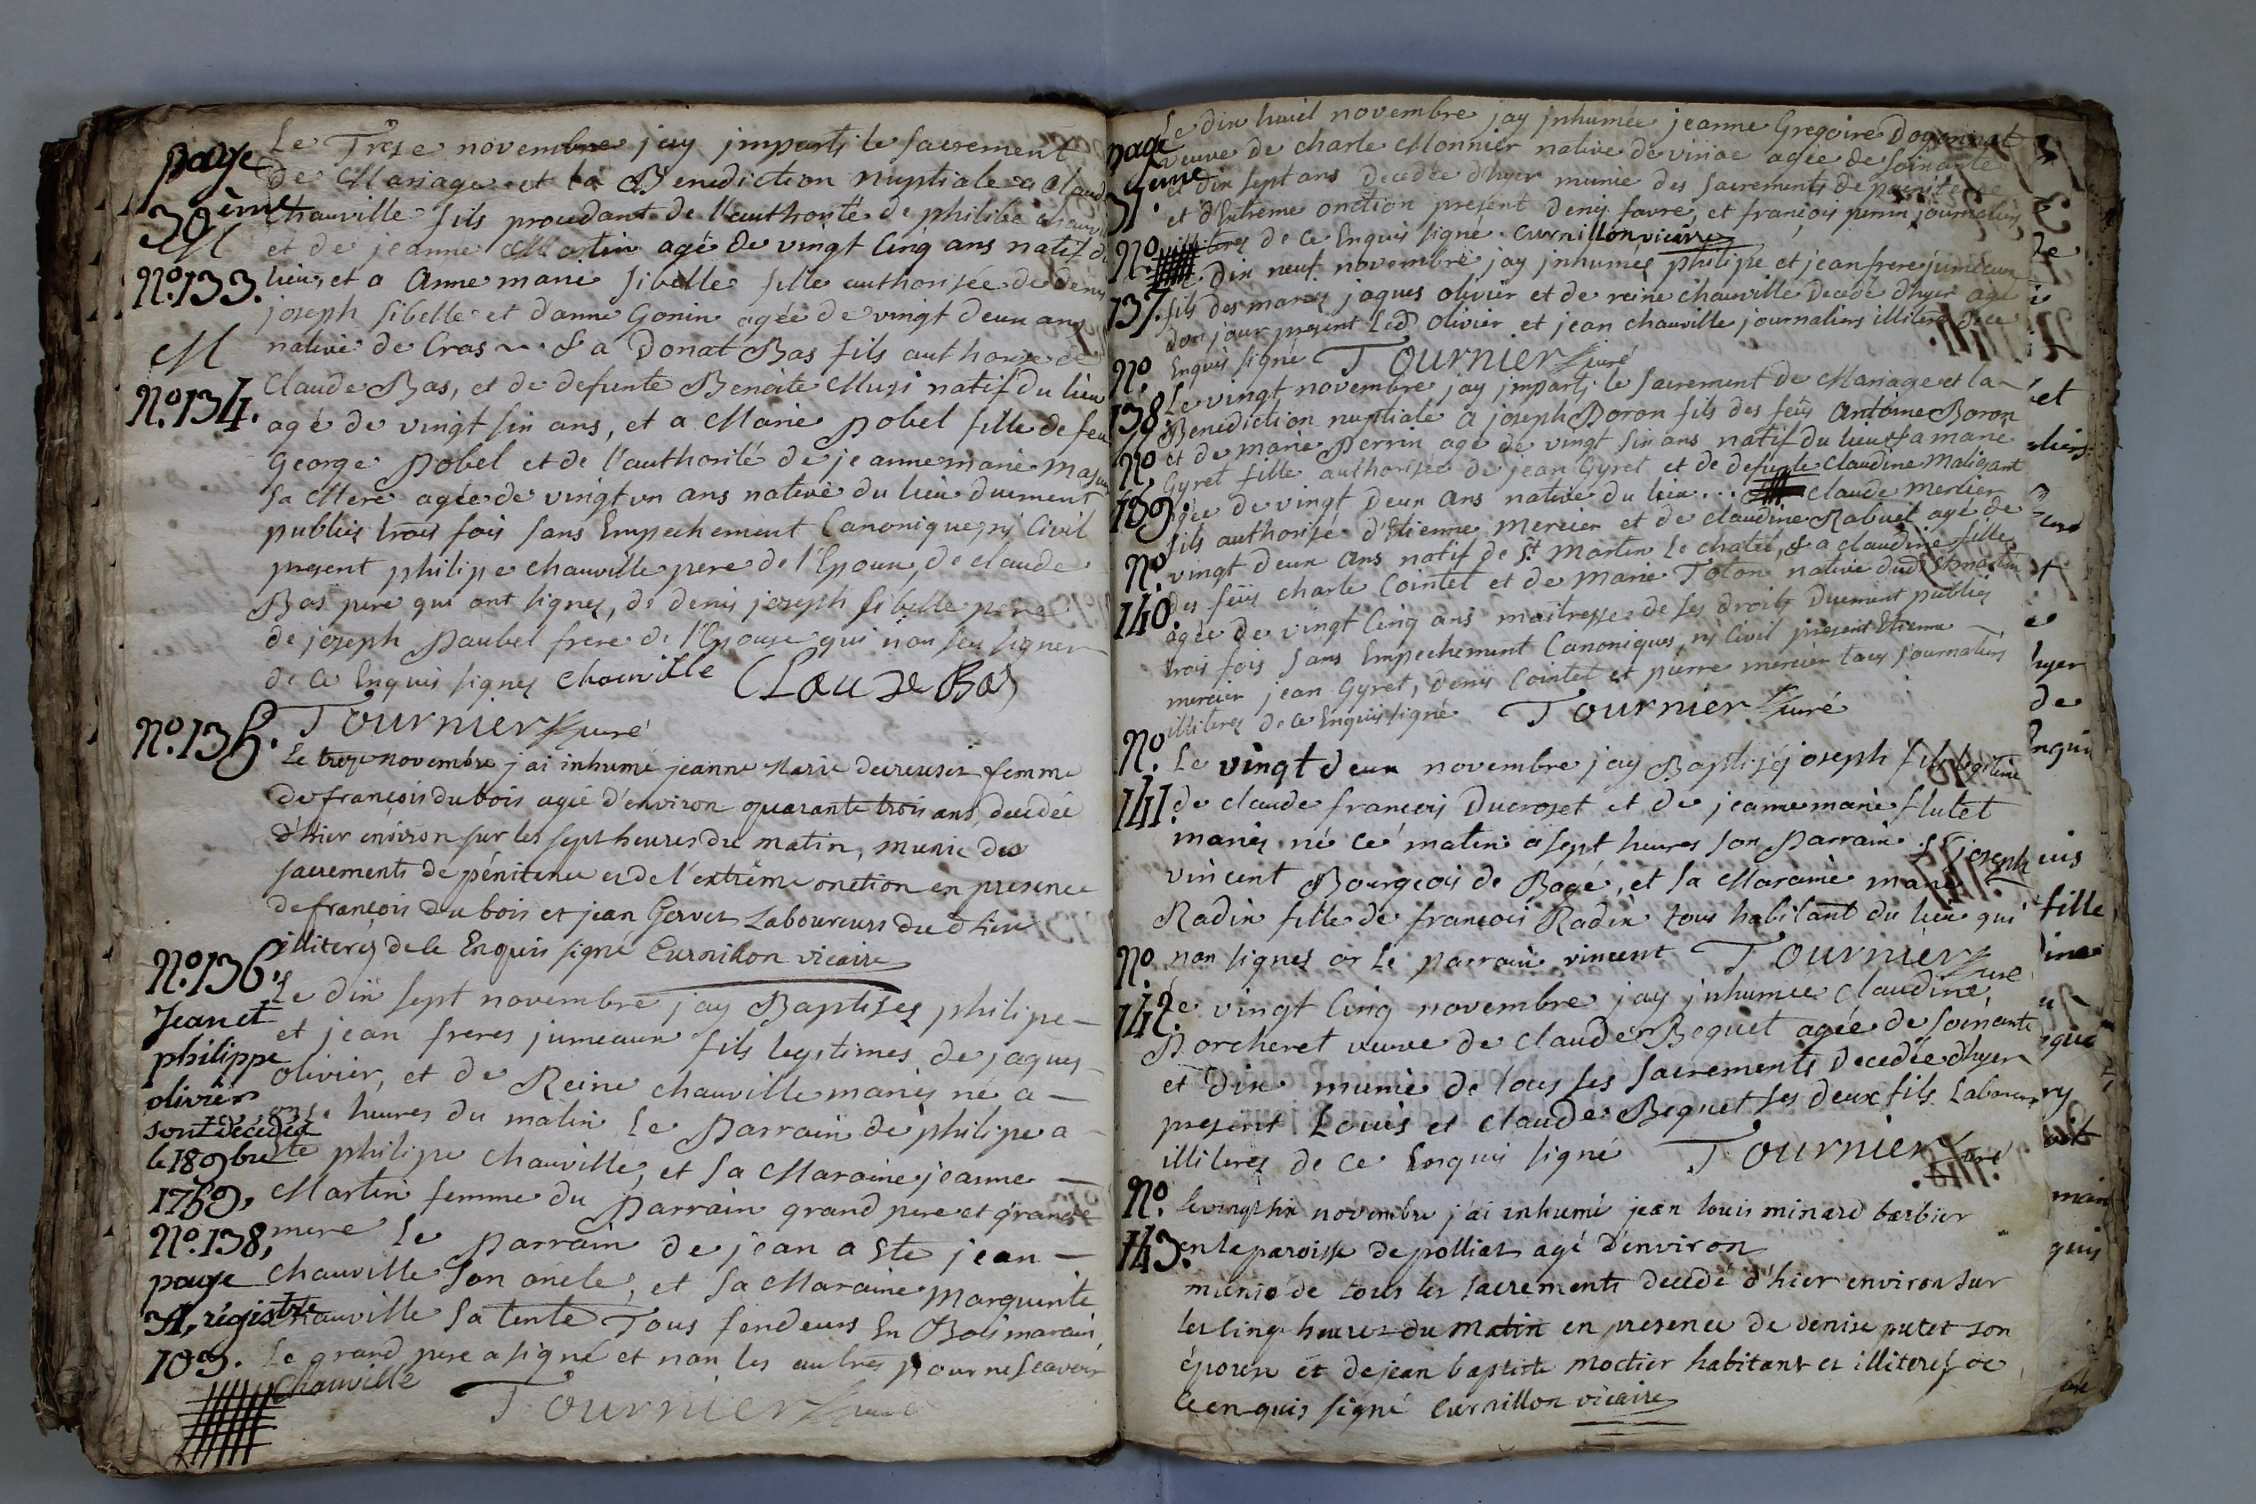 page
30 ème
M
N.o 133.
M
N.o 134.
N.o 135.
N.o 136.
Jean et
philippe
olivier
sont décédés
le 18 9bre
1759,
N.o 138,
page
31, régistre
109.
Le Treze novembre jay imparti le sacrement
de Mariage et la Benediction nuptiale a Claud
Chauville fils procedant de l'authorité de philibe chauv
et de jeanne Martin agé de vingt Cinq ans natif d
lieu, et a Anne marie Sibelle fille authorisée de denis
joseph Sibelle et danne Gonin agée de vingt deux ans
native de Cras ~ & a Donat Bas fils authorisé de
Claude Bas, et de defunte Benoite Muzi natif du lieu
agé de vingt six ans, et a Marie pobel fille de feu
George pobel et de l'authorité de jeanne marie Mas
sa Mere agée de vingt un ans native du lieu duement
publiés trois fois sans Empechement Canonique, ni Civil
present philipe chauville pere de l'Epoux, de claude
Bas pere qui ont signés, de denis joseph sibelle pere
de joseph paubel frere de l'Epouse qui non seu signer
de ce Enquis signés Chauville Claude Bas
Tournier Curé
Le treze novembre j'ai inhumé jeanne Marie femme
de françois du bois agée d'environ quarante trois ans, decedée
d'hier environ sur les sept heures du matin, munie des
sacrements de pénitence et de l'extrême onction en presence
de françois du bois et jean Gervet Laboureurs dud lieu
illiterés de ce Enquis signé Curnillon vicaire
Le dix sept novembre jay Baptisés philipe
et jean freres jumeaux fils legitimes de jaques
olivier, et de Reine chauville mariés né a
onze heures du matin Le Parrain de philipe a
ete philipe chauville, et sa Maraine jeanne
Martin femme du Parrain grand pere et grande
mere Le parrain de jean a ete jean
Chauville son oncle, et sa Maraine Marguerite
chauville sa tente Tous fendeurs En Bois marain
Le grand pere a signé et non les autres pour ne scavoir
Chauville Tournier Curé
page
31. eme
N.o
137.
N.o
138.
N.o
139.
N.o
140.
N.o
141.
N.o
142.
N.o
143.
Le dix huit novembre jay inhumée jeanne Gregoire
veuve de charle Monnier native de viriac agée de soixante
et dix sept ans decedée d'hyer munie des sacrements de penitence
et d'Extreme onction present denis favre, et françois perrin journaliers
illiteres de ce Enquis signé Curnillon vicaire
Le dix neuf novembre jay inhumés philipe et jean frere jumeaux
fils des mariés jaques olivier et de reine chauville decede d'hyer agé
d'un jour present Led olivier et jean chauville journaliers illiterés de ce
Enquis signé Tournier Curé
Le vingt novembre jay imparti le sacrement de Mariage et la
Benediction nuptiale a joseph Boron fils des feûs Antoine Boron
et de marie Perrin agé de vingt six ans natif du lieu & a marie
Gyret fille authorisée de jean Gyret et de defunte Claudine Malissant
agée de vingt deux ans native du lieu ... claude mercier
fils authorisé d'Etienne mercier et de claudine Rabuel agé de
vingt deux ans natif de St. Martin le chatel, & a claudine fille
des feûs charle Cointet et de Marie Tolon native dud St martin
agée de vingt Cinq ans maitresse de ses droits Duement publiés
trois fois sans Empechement Canoniques, ni Civil present Etienne
mercier jean Gyret, Denis Cointet et pierre mercier tous journaliers
illiteres de ce Enquis signé Tournier Curé
Le vingt deux novembre jay Baptisé joseph fils legitime
de claude françois Ducroset et de jeanne marie flutet
mariés né ce matin a sept heures son Parrain Sr joseph
vincent Bourgeois de Bagé, et sa Maraine marie
Radix fille de françois Radix tous habitant du lieu qui
non signés or le parrain vincent Tournier Curé
Le vingt Cinq novembre jay inhumée Claudine
Porcheret veuve de Claude Bequet agée de soixante
et Dix munie de tous ses sacrements Decedée d'hyer
present Louis et Claude Bequet ses deux fils Laboureurs
illiteres de ce Enquis signé Tournier Curé
Le vingt six novembre j'ai inhumé jean louis minard barbier
en la paroisse de polliat agé d'environ
munis de tous les sacrements decedé d'hier environ sur
les cinq heures du Matin en presence de denise putet son
épouse et de jean baptiste moctier habitant et illiteres de
ce enquis signé Curnillon vicaire
et
hyer
de
Enquis
fille